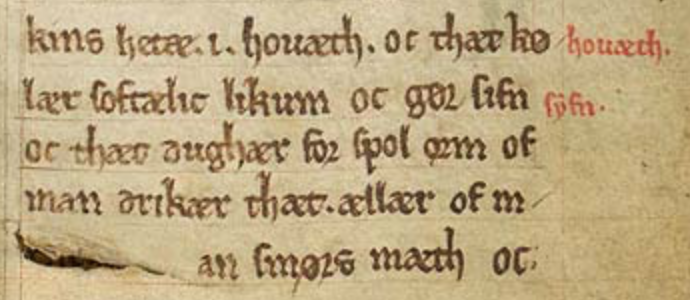 kins hetæ. i. houæth. oc thæt kø houæth.
lær softælic likum oc gør sifn syfn.
oc thæt dughær for spol orm of
man drikær thæt. ællær of m
an smørs mæth oc.